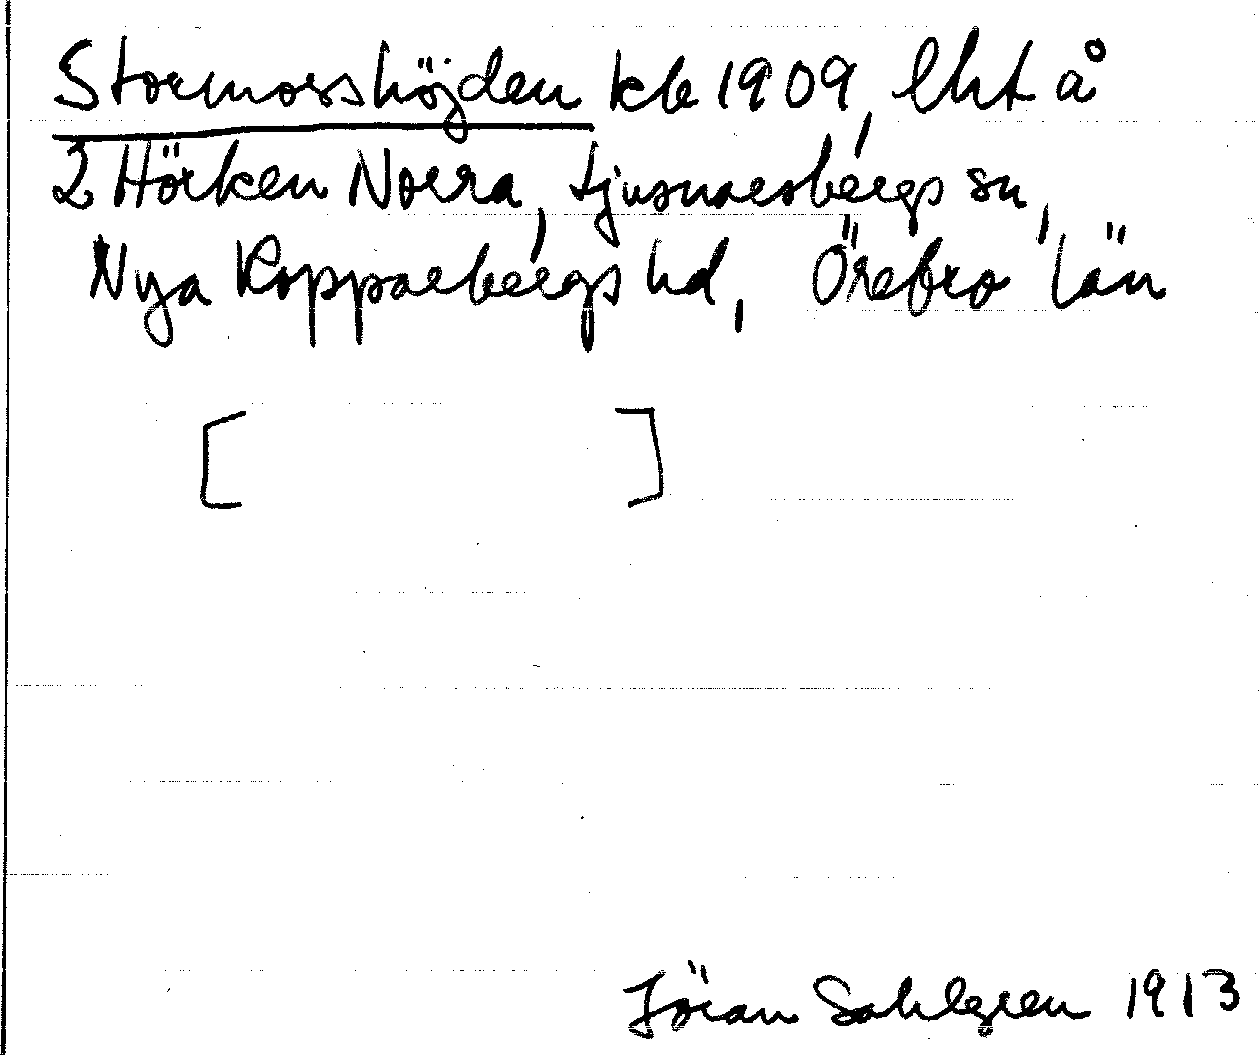 Stormorshöjden kb 1909, lht å
2 Hörken Norra, Ljusnarsbergs sn,
Nya Kopparbergs hd, Örebro län
[ ]
Jöran Sahlgren 1913